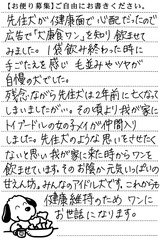 【お便り募集】ご自由にお書きください。
先住犬が健康面で心配だったので
広告で「犬康食ワン」を知り飲ませて
みました。1袋飲み終わった時に
手ごたえを感じ毛並みやツヤが
自慢の犬でした。
残念ながら先住犬は2年前に亡くなって
しまいましたが…。その頃より我が家に
トイプードルの女の子メイが仲間入り
しました。先住犬のような思いをさせたく
ないと思い我が家に来た時からワンを
飲ませています。そのお陰か元気いっぱいの
甘えん坊。みんなのアイドルです。これからも
健康維持のため ワンに
お世話になります。